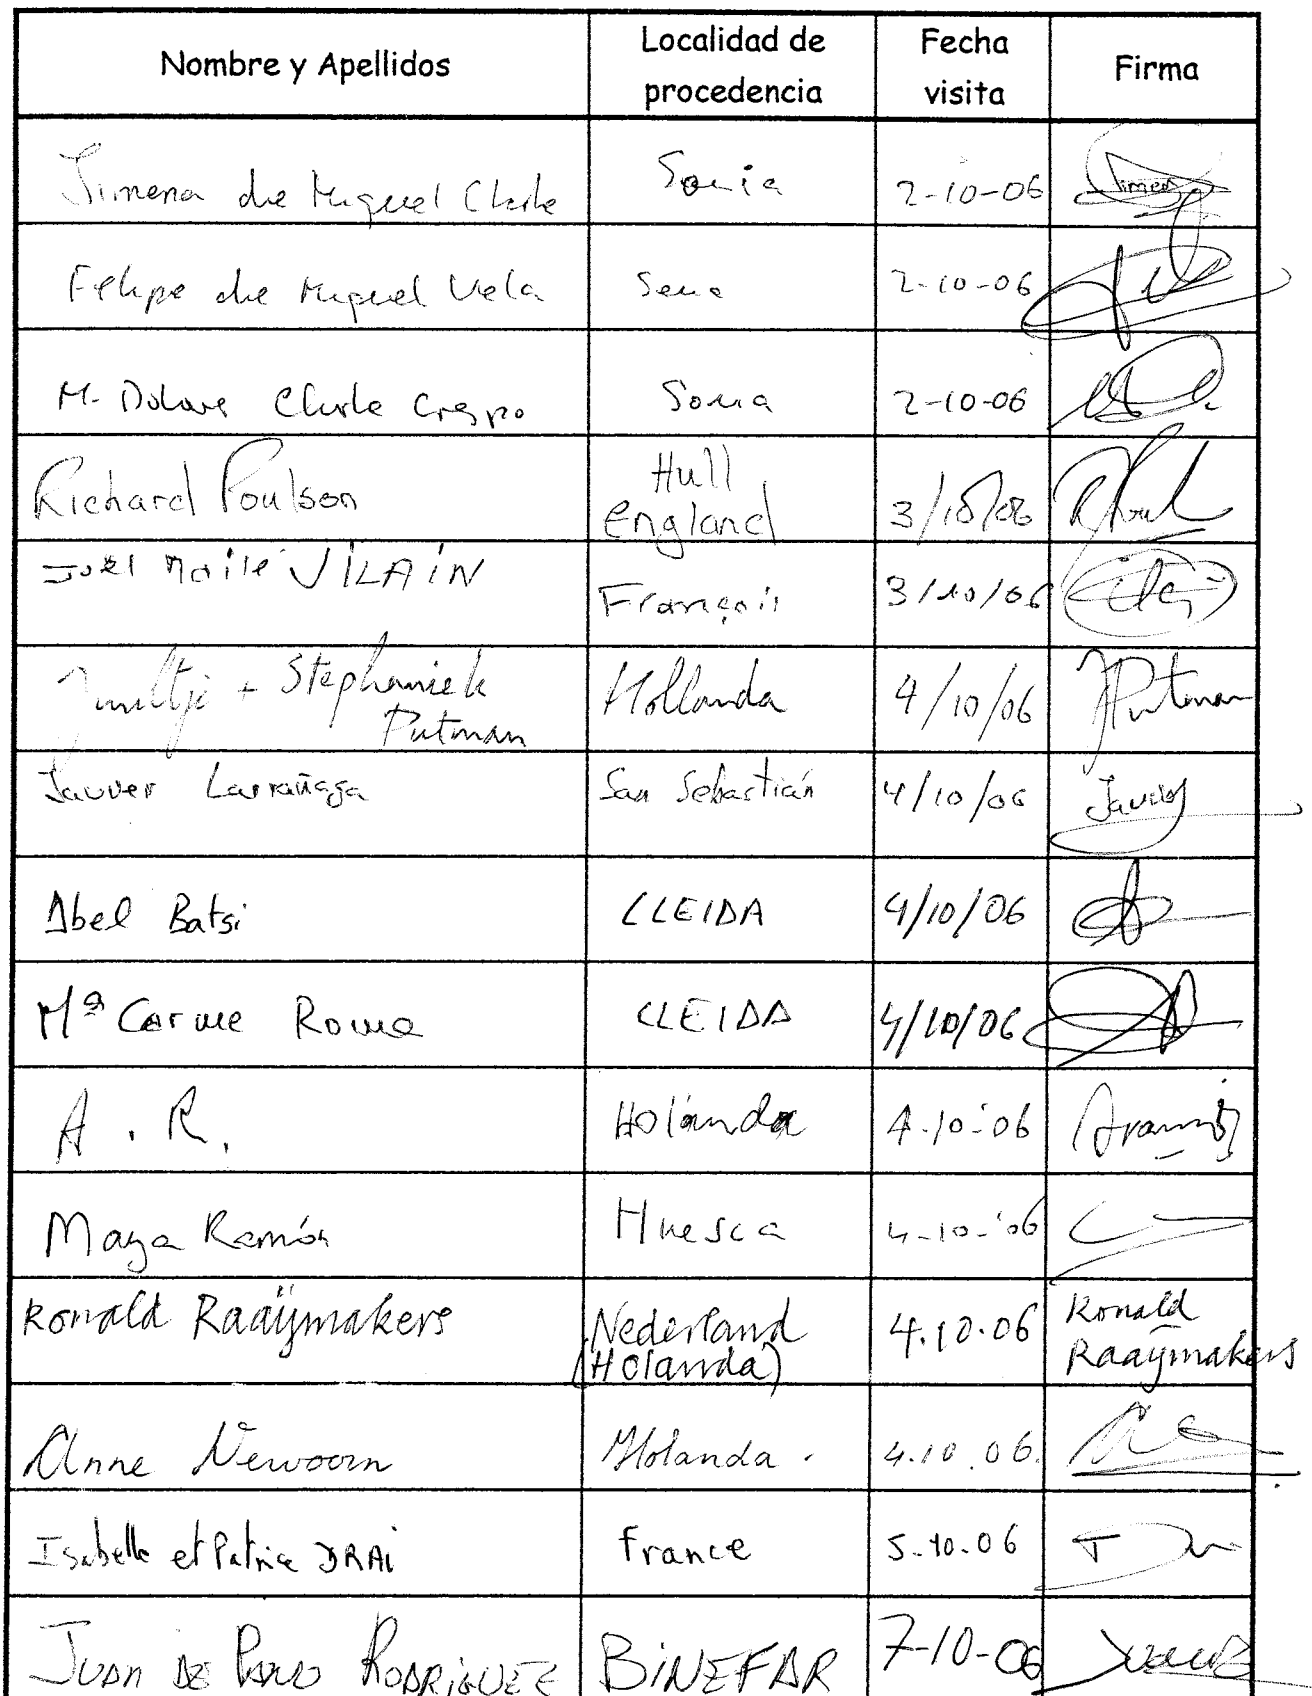 Nombre y Apellidos Localidad de procedencia Fecha visita Firma
Jimena de Miguel Soria 2-10-06 Jimena
Felipe de Miguel Vela Soria 2-10-06
M. Dolores Crespo Soria 2-10-06
Richard Poulson Hull England 3/10/06
Joel VILAIN François 3/10/06
+ Stephanie Putman Hollanda 4/10/06 Putman
Javier Larrañaga San Sebastián 4/10/06 Javier
Abel Batsi LLEIDA 4/10/06
Mª Carme Roma LLEIDA 4/10/06
A. R. Holanda 4-10-06
Maya Ramón Huesca 4-10-'06
Ronald Raaÿmakers Nederland (Holanda) 4.10.06 Ronald Raaÿmakers
Anne Holanda. 4.10.06.
Isabelle et Patrice DRAI France 5-10-06
JUAN DE RODRIGUEZ BINEFAR 7-10-06